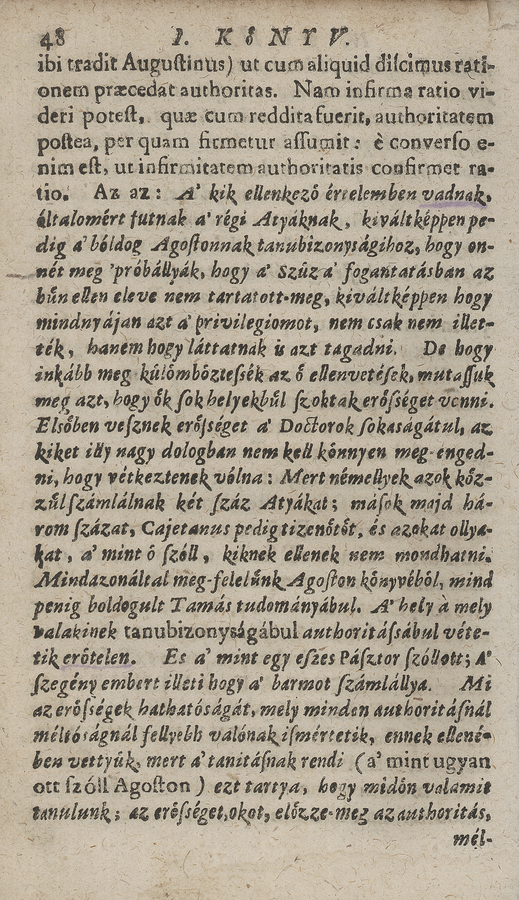 48 I. KÖNYV.
ibi tradit Auguſtinus) ut cum aliquid diſcimus rati-
onem præcedat authoritas. Nam infirma ratio vi-
deri poteſt, quæ cum reddita fuerit, authoritatem
poſtea, per quam firmetur aſſumit: è converſo e-
nim eſt, ut infirmitatem authoritatis confirmet ra-
tio. Az az: A' kik ellenkezö értelemben vadnak,
általomért futnak a' régi Atyáknak, kiváltképpen pe-
dig a' bóldog Agoſtonnak tanubizonyságihoz, hogy on-
nét meg 'próbállyák, hogy a' Szûz a' fogantatásban az
bûn ellen eleve nem tartatott-meg, kiváltképpen hogy
mindnyájan azt a' privilegiomot, nem csak nem illet-
ték, hanem hogy láttatnak is azt tagadni. De hogy
inkább meg külömböztesſék az ö ellenvetéſek, mutaſſuk
meg azt, hogy ök ſok helyekbûl ſzoktak erösſéget venni.
Elsöben veſznek erösſéget a' Doctorok ſokaságátul, az
kiket illy nagy dologban nem kell könnyen meg-enged-
ni, hogy vétkeztenek vólna: Mert némellyek azok köz-
zûl ſzámlálnak két ſzáz Atyákat; máſok majd há-
rom ſzázat, Cajetanus pedig tizenötöt, és azokat ollya-
kat, a' mint ö ſzóll, kiknek ellenek nem mondhatni.
Mindazonáltal meg-felelûnk Agoſton könyvéböl, mind
penig boldogult Tamás tudományábul. A' hely à mely
valakinek tanubizonyságábul authoritáſsábul véte-
tik erötelen. Es a' mint egy eſzes Páſztor ſzóllott; A'
ſzegény embert illeti hogy a' barmot ſzámlállya. Mi
az erösſégek hathatóságát, mely minden authoritáſnál
méltóságnál fellyebb valónak iſmértetik, ennek ellené-
ben vettyûk, mert a' tanitáſnak rendi (a' mint ugyan
ott ſzóll Agoſton) ezt tartya, hogy midön valamit
tanulunk; az erösſéget, okot, elözze-meg az authoritás,
mél-